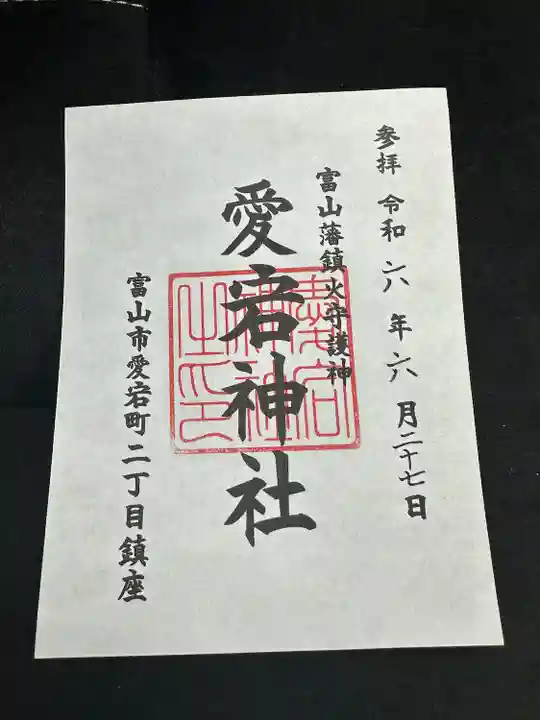 参拝 令和六年六月二十七日
富山藩鎮火守護神
愛宕神社
愛宕神社之印
富山市愛宕町二丁目鎮座